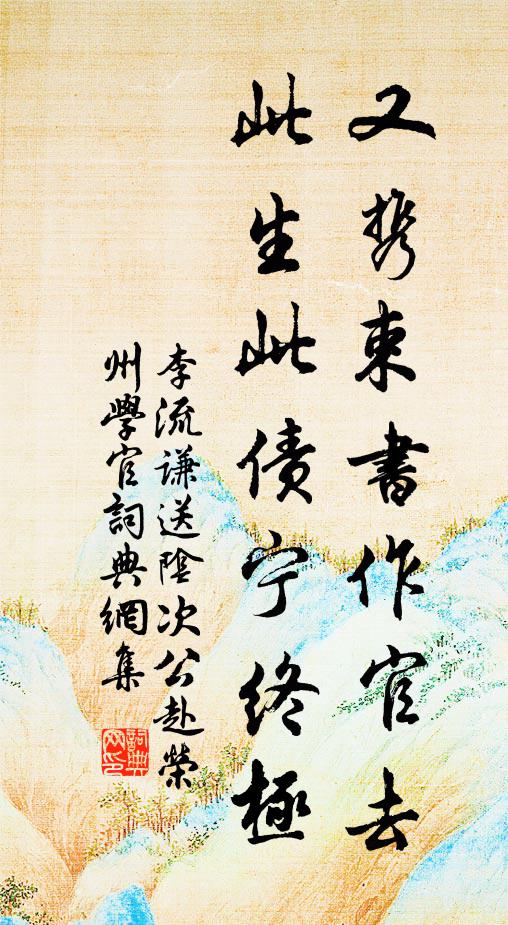 又携束書作官去
此生此债宁終極
李流謙送陰次公赴榮
州學官詞典網集